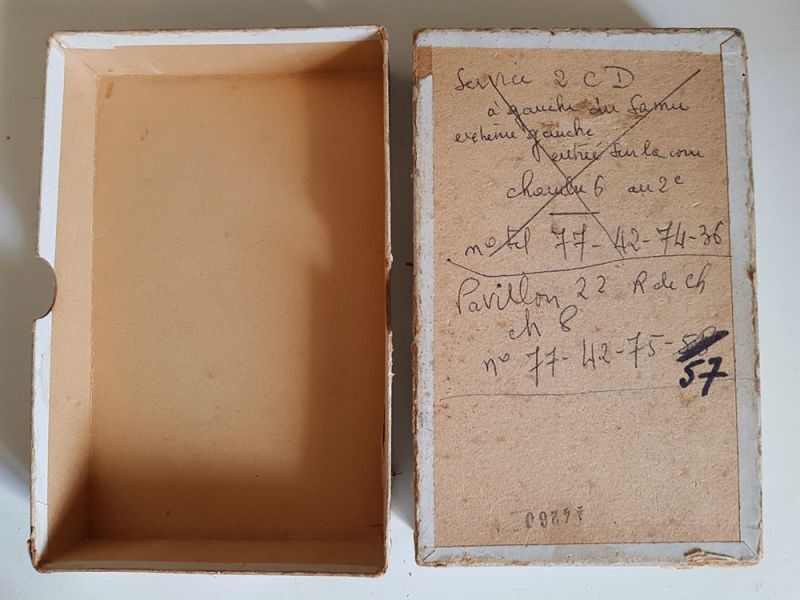 Service 2 C D
à gauche du Samu
extrème gauche
entrée sur la cour
chambre 6 au 2e
no tel 77-42-74-36
Pavillon 22 R de Ch
ch 8
no 77-42-75-
57